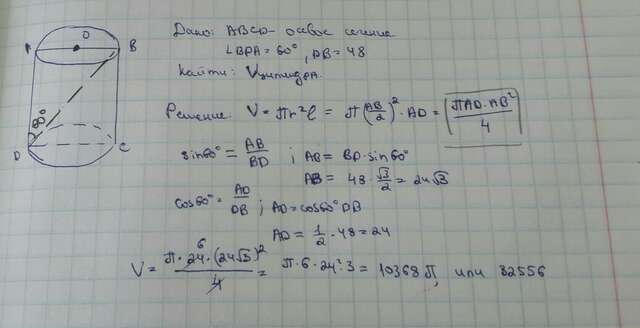 Дано: ABCD – осевое сечение
∠BDA = 60°, DB = 48
Найти: Vцилиндра.
Решение: V = πr²l = π(AB/2)² · AD = πAD·AB²/4
sin60° = AB/BD ; AB = BD·sin60°
AB = 48·√3/2 = 24√3
cos60° = AD/DB ; AD = cos60°·DB
AD = 1/2 · 48 = 24
V = π·24·(24√3)²/4 = π·6·24²·3 = 10368π, или 32556
6
A O B
60°
D C